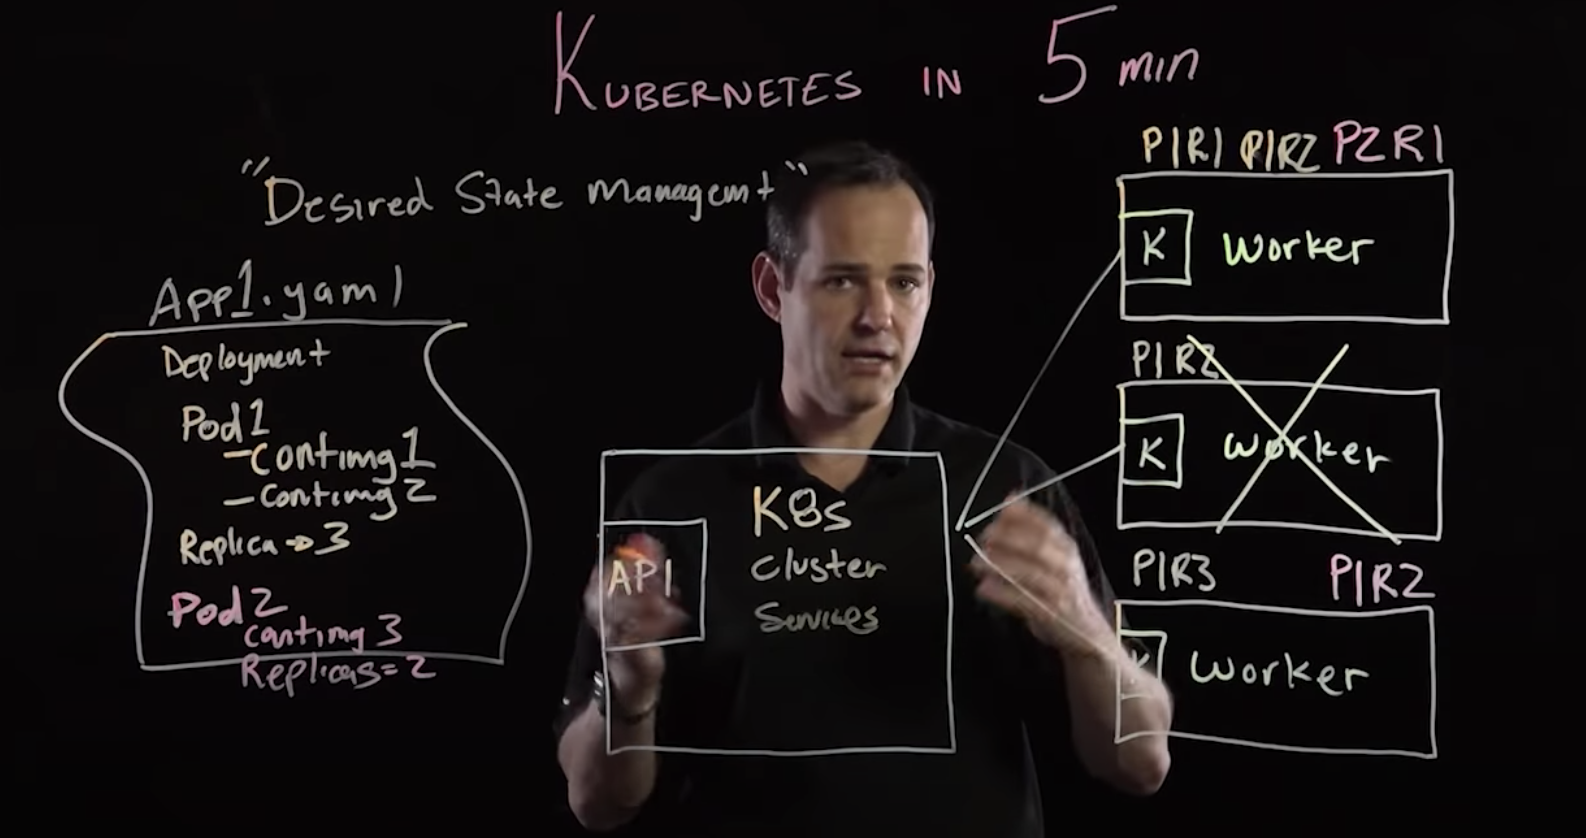 KUBERNETES IN 5 min
"Desired State Managemt"
App1.yaml
Deployment
Pod 1
- Contimg 1
- Contimg 2
Replica → 3
Pod 2
contimg 3
Replicas = 2
API
K8s
Cluster
Services
P1R1 P1R2 P2R1
K Worker
P1R2
K Worker
P1R3 P1R2
K Worker